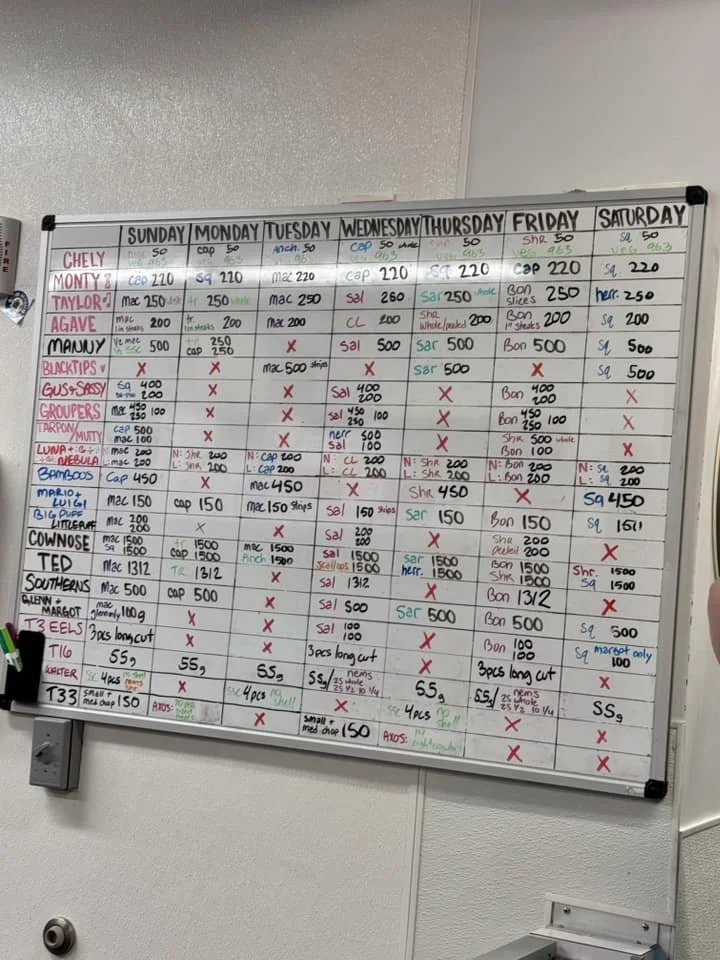 SUNDAY MONDAY TUESDAY WEDNESDAY THURSDAY FRIDAY SATURDAY
CHELY mac 50 cap 50 Anch. 50 cap 50 whole 50 Shr 50 Sq 50
veg 963 veg 963 veg 963 veg 963 veg 963 veg 963
MONTY cap 220 Sq 220 Mac 220 cap 220 Sq 220 cap 220 Sq 220
TAYLOR mac 250 whole tr. 250 whole mac 250 Sal 260 Sar 250 whole Bon slices 250 herr. 250
AGAVE mac 1in steaks 200 tr. 1in steaks 200 Mac 200 CL 200 Shr whole/peeled 200 Bon 1" steaks 200 Sq 200
MANNY 500 250 cap 250 X Sal 500 Sar 500 Bon 500 Sq 500
BLACKTIPS X X mac 500 strips X Sar 500 X Sq 500
GUS+SASSY Sq 400 200 X X Sal 400 200 X Bon 400 200 X
GROUPERS Mac 450 250 100 X X Sal 450 250 100 X Bon 450 250 100 X
TARPON/MUTTY cap 500 mac 100 X X herr 500 Sal 100 X Shr 500 whole Bon 100 X
LUNA+ N: mac 200 N: Shr 200 N: cap 200 N: CL 200 N: Shr 200 N: Bon 200 N: Sq 200
NEBULA L: mac 200 L: Shr 200 L: cap 200 L: CL 200 L: Shr 200 L: Bon 200 L: Sq 200
BAMBOOS Cap 450 X mac 450 X Shr 450 X Sq 450
MARIO+LUIGI Mac 150 cap 150 Mac 150 strips Sal 150 strips Sar 150 Bon 150 Sq 150
BIG PUFF LITTLE PUFF Mac 200 200 X X Sal 200 200 X Shr 200 peeled 200 X
COWNOSE mac 1500 Sq 1500 tr 1500 cap 1500 mac 1500 Anch 1500 sal 1500 scallops 1500 sar 1500 herr. 1500 Bon 1500 Shr 1500 Shr. 1500 Sq 1500
TED Mac 1312 TR 1312 X Sal 1312 X Bon 1312 X
SOUTHERNS Mac 500 cap 500 X Sal 500 Sar 500 Bon 500 Sq 500
GLENN+MARGOT mac glenn only 100g X X Sal 100 100 X Bon 100 100 Sq margot only 100
T3 EELS 3pcs long cut X X 3pcs long cut X 3pcs long cut X
T16 SSg SSg SSg SSg/ nems 25 whole 25 1/2 10 1/4 SSg SSg/ nems 25 whole 25 1/2 10 1/4 SSg
WALTER SC 4pcs no shell X SSC 4pcs no shell X SSC 4pcs no shell X X
T33 small + med chop 150 AXOS: X small + med chop 150 AXOS: X X
FIRE